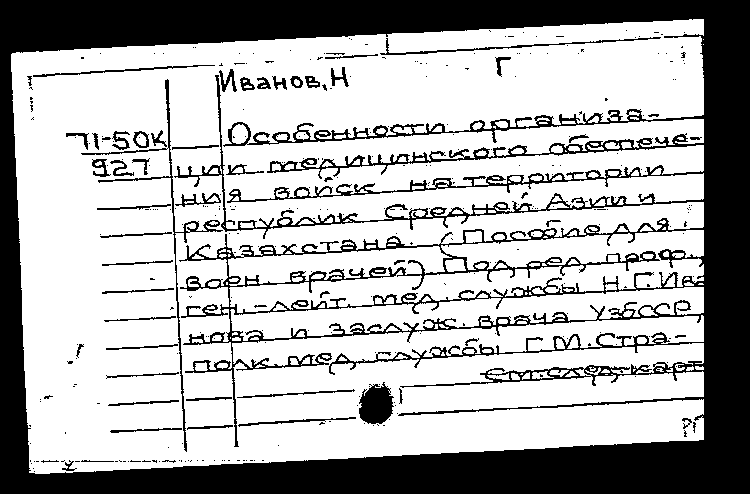 Иванов, Н Г
71-50К Особенности организа-
927 ции медицинского обеспече-
ния войск на территории
республик Средней Азии и
Казахстана. (Пособие для
воен. врачей) Под ред. проф.,
ген.-лейт. мед. службы Н.Г.Ива
нова и заслуж. врача УзбССР,
полк. мед. службы Г.М.Стра-
см. след. карт
РГ